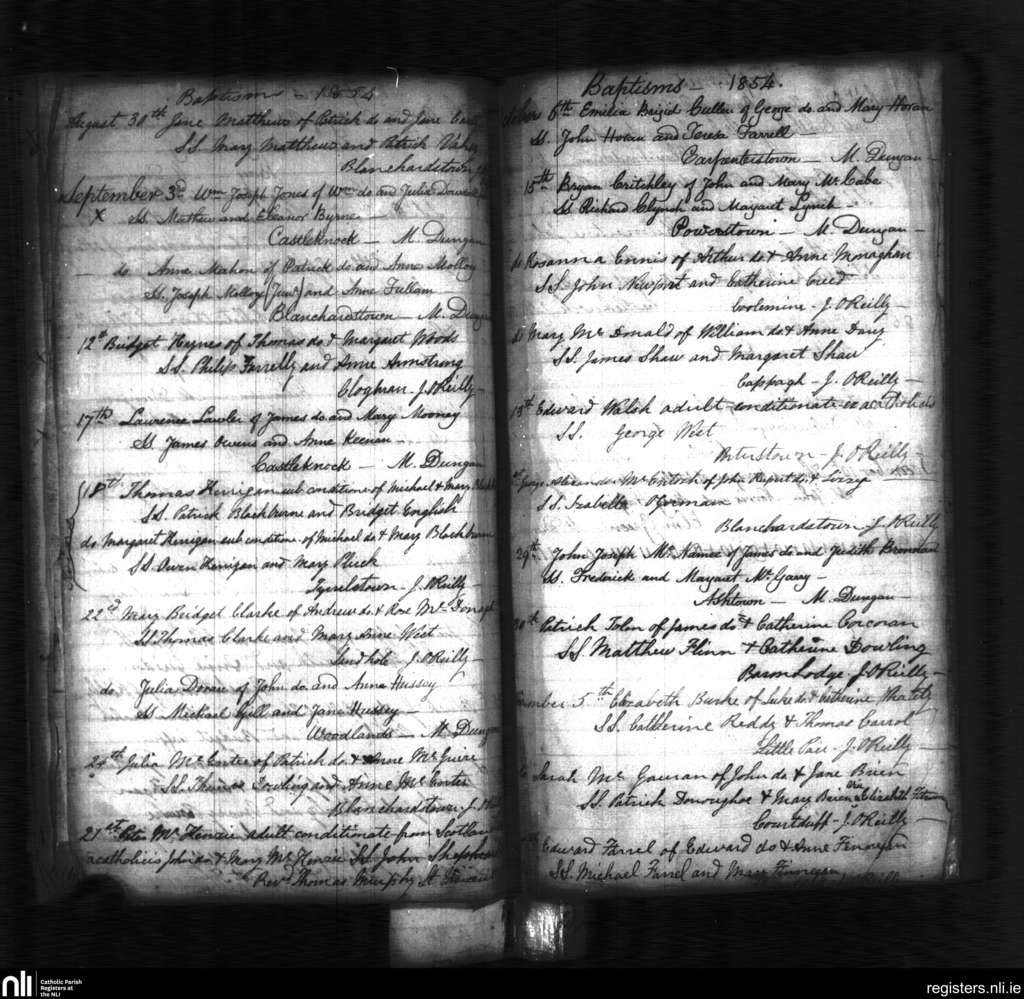 Baptisms - 1854
August 30th Jane Matthews of Patrick do and Jane
SS. Mary Matthews and Patrick
Blanchardstown
September 3d Wm Joseph Jones of Wm do and Julia
X SS Mathew and Eleanor Byrne -
Castleknock - M. Dungan
- do Anne Meehon of Patrick do and Anne Molloy
SS. Joseph Molloy (Junr) and Anne Fullam -
Blanchardstown - M. Dungan
12th Bridget Heynes of Thomas do & Margaret Woods
SS. Philip Farrelly and Anne Armstrong
Cloghran - J. O'Reilly -
17th Lawrence Lawler of James do and Mary Mooney
SS. James Owens and Anne Keenan -
Castleknock - M. Dungan
18th Thomas Kerrigan sub conditione of Michael & Mary
SS. Patrick Blackburne and Bridget English
do Margaret Kerrigan sub conditione of Michael do & Mary Blackburne
SS Owen Kerrigan and Mary Pluck
Tyrrelstown - J. O'Reilly -
22d Mary Bridget Clarke of Andrew do & Rose
SS. Thomas Clarke and Mary Anne West
J. O'Reilly -
do Julia Doran of John do and Anne Hussey
SS Michael Gill and Jane Hussey -
Woodlands - M. Dungan
24th Julia McEntee of Patrick do & Anne McGuire
SS. Thomas Dowling and Anne McEntee
Blanchardstown - J.
21st Peter McKenzie adult conditionate from Scotland
acatholicis John do & Mary McKenzie SS. John
Revd Thomas Murphy St
Baptisms - 1854.
6th Emilia Brigid Cullen of George do and Mary Horan
SS. John Horan and Teresa Farrell -
Carpenterstown - M. Dungan -
15th Bryan Critchley of John and Mary McCabe
SS Richard Clynch and Margaret Lynch -
Powerstown - M. Dungan -
do Rosanna Ennis of Arthur do & Anne Monaghan
SS. John Newport and Catherine Creed
Coolmine - J. O'Reilly -
do Mary McDonald of William do & Anne Davy
SS. James Shaw and Margaret Shaw
Cappagh - J. O'Reilly -
18th Edward Walsh adult conditionate ex acatholicis
SS. George West
J. O'Reilly -
George McEntosh of John Rupert do &
SS. Isabella O'Gorman
Blanchardstown - J. O'Reilly
29th John Joseph McNamee of James do and Judith Brennan
SS. Frederick and Margaret McGarry -
Ashtown - M. Dungan -
30th Patrick Tolan of James do & Catherine Corcoran
SS. Matthew Flinn & Catherine Dowling
Baron Lodge J. O'Reilly -
5th Elizabeth Burke of Luke do & Catherine
SS. Catherine Reddy & Thomas Carrol
Little Pace - J. O'Reilly -
Sarah McGowran of John do & Jane Brien
SS. Patrick Donoughoe & Mary Brien Elizabeth
Courtduff - J. O'Reilly -
Edward Farrel of Edward do & Anne Finnegan
SS. Michael Farrel and Mary Finnegan
nli
Catholic Parish
Registers at
the NLI
registers.nli.ie